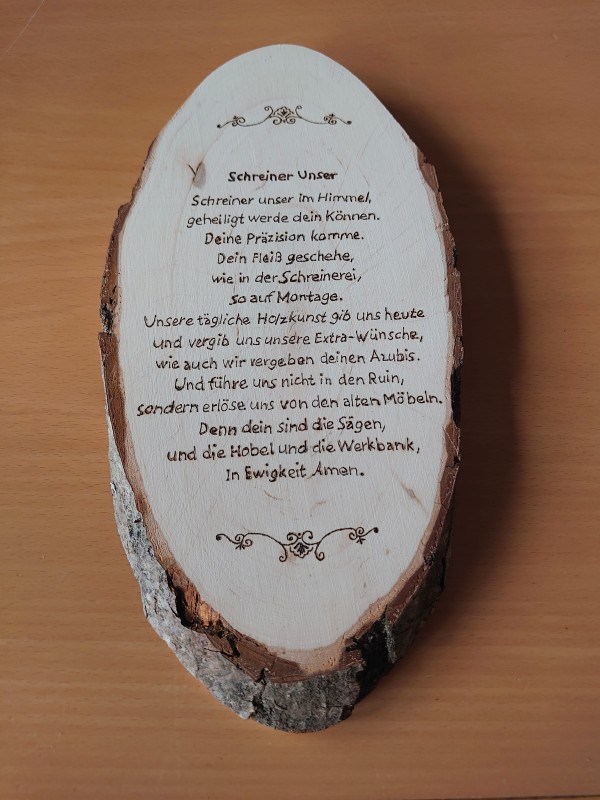 Schreiner Unser
Schreiner unser im Himmel,
geheiligt werde dein Können.
Deine Präzision komme.
Dein Fleiß geschehe,
wie in der Schreinerei,
so auf Montage.
Unsere tägliche Holzkunst gib uns heute
und vergib uns unsere Extra-Wünsche,
wie auch wir vergeben deinen Azubis.
Und führe uns nicht in den Ruin,
sondern erlöse uns von den alten Möbeln.
Denn dein sind die Sägen,
und die Hobel und die Werkbank,
In Ewigkeit Amen.